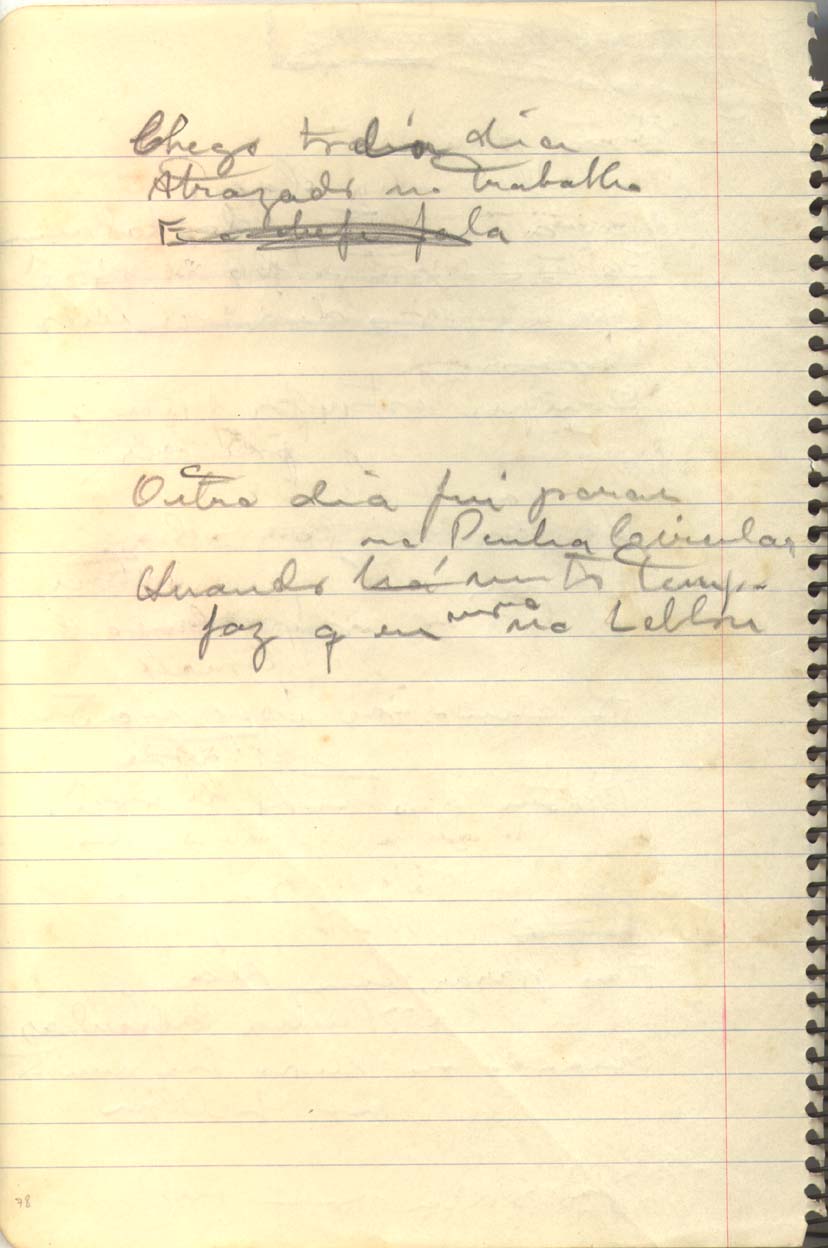 Chego todo dia
Atrazado no trabalho
E o chefe fala
Outro dia fui parar
na Penha Circular
Quando há muito tempo
faz q eu moro no Leblon
78